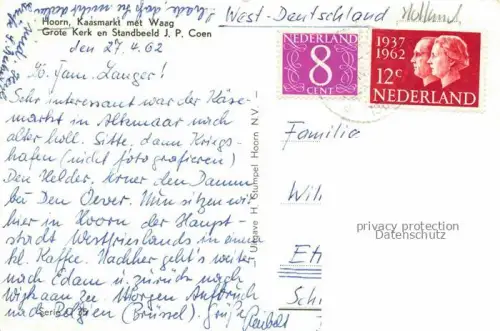 West-Deutschland
Holland,
Hoorn, Kaasmarkt met Waag
Grote Kerk en Standbeeld J. P. Coen
den 27.4.62
8
CENT
NEDERLAND
1937
1962
12 c
NEDERLAND
Fam. Langer!
Sehr interessant war der Käse-
markt in Alkmaar nach
alter holl. Sitte, dann Kriegs-
hafen (nicht fotografieren)
Den Helder, ferner den Damm
bei Den Oever. Nun sitzen wir
hier in Hoorn der Haupt-
stadt Westfrieslands in einem
kl. Kaffee. Nachher geht's weiter
nach Edam u. zurück nach
Wijk aan Zee. Morgen Aufbruch
nach Belgien (Brüssel). Grüße
Serie
Uitgave H. Stumpel Hoorn N.V. —
Familie
Wil
privacy protection
Datenschutz
Et
Sch